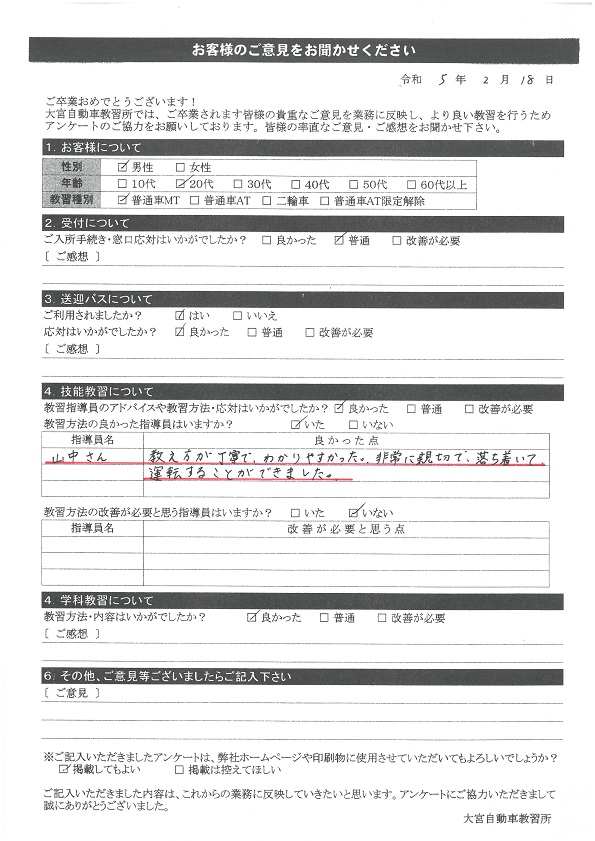 お客様のご意見をお聞かせください
令和 5 年 2 月 18 日
ご卒業おめでとうございます！
大宮自動車教習所では、ご卒業されます皆様の貴重なご意見を業務に反映し、より良い教習を行うため
アンケートのご協力をお願いしております。皆様の率直なご意見・ご感想をお聞かせ下さい。
1. お客様について
性別 ☑男性 □女性
年齢 □10代 ☑20代 □30代 □40代 □50代 □60代以上
教習種別 ☑普通車MT □普通車AT □二輪車 □普通車AT限定解除
2. 受付について
ご入所手続き・窓口応対はいかがでしたか？ □良かった ☑普通 □改善が必要
〔 ご感想 〕
3. 送迎バスについて
ご利用されましたか？ ☑はい □いいえ
応対はいかがでしたか？ ☑良かった □普通 □改善が必要
〔 ご感想 〕
4. 技能教習について
教習指導員のアドバイスや教習方法・応対はいかがでしたか？ ☑良かった □普通 □改善が必要
教習方法の良かった指導員はいますか？ ☑いた □いない
指導員名 良かった点
山中さん 教え方が丁寧で、わかりやすかった。非常に親切で、落ち着いて
運転することができました。
教習方法の改善が必要と思う指導員はいますか？ □いた ☑いない
指導員名 改善が必要と思う点
4. 学科教習について
教習方法・内容はいかがでしたか？ ☑良かった □普通 □改善が必要
〔 ご感想 〕
6. その他、ご意見等ございましたらご記入下さい
〔 ご意見 〕
※ご記入いただきましたアンケートは、弊社ホームページや印刷物に使用させていただいてもよろしいでしょうか？
☑掲載してもよい □掲載は控えてほしい
ご記入いただきました内容は、これからの業務に反映していきたいと思います。アンケートにご協力いただきまして
誠にありがとうございました。
大宮自動車教習所